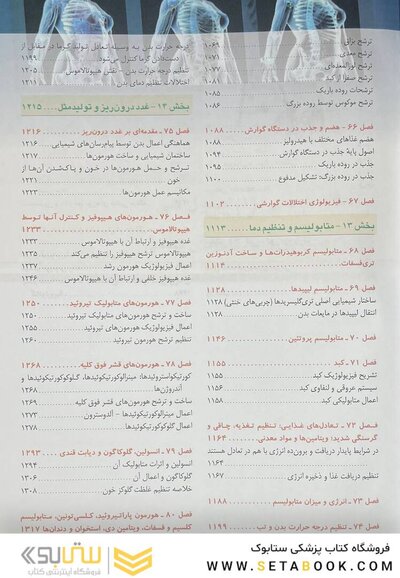 ترشح بزاق ۱۰۶۹
ترشح معدی ۱۰۷۱
ترشح لوزالمعده‌ای
ترشح صفرا از کبد ۱۰۸۱
ترشحات روده باریک ۱۰۸۵
ترشح موکوس توسط روده بزرگ ۱۰۸۶
فصل ۶۶ - هضم و جذب در دستگاه گوارش ۱۰۸۸
هضم غذاهای مختلف با هیدرولیز ۱۰۸۸
اصول پایهٔ جذب در دستگاه گوارش ۱۰۹۴
جذب در روده باریک ۱۰۹۵
جذب در روده بزرگ: تشکیل مدفوع ۱۱۰۰
فصل ۶۷ - فیزیولوژی اختلالات گوارشی ۱۱۰۲
بخش ۱۳ - متابولیسم و تنظیم دما ۱۱۱۳
فصل ۶۸ - متابولیسم کربوهیدرات‌ها و ساخت آدنوزین
تری‌فسفات ۱۱۱۴
فصل ۶۹ - متابولیسم لیپیدها ۱۱۲۸
ساختار شیمیایی اصلی تری‌گلیسریدها (چربی‌های خنثی) ۱۱۲۸
انتقال لیپیدها در مایعات بدن ۱۱۲۸
فصل ۷۰ - متابولیسم پروتئین ۱۱۴۶
فصل ۷۱ - کبد ۱۱۵۵
تشریح فیزیولوژیک کبد ۱۱۵۵
سیستم عروقی و لنفاوی کبد ۱۱۵۶
اعمال متابولیکی کبد ۱۱۵۸
فصل ۷۲ - تعادل‌های غذایی؛ تنظیم تغذیه، چاقی و
گرسنگی شدید؛ ویتامین‌ها و مواد معدنی ۱۱۶۳
در شرایط پایدار دریافت و برون‌ده انرژی با هم در تعادل هستند
۱۱۶۴
تنظیم دریافت غذا و ذخیره انرژی ۱۱۶۷
فصل ۷۳ - انرژی و میزان متابولیسم ۱۱۸۸
فصل ۷۴ - تنظیم درجه حرارت بدن و تب ۱۱۹۹
درجه حرارت بدن به وسیله تعادل تولید گرما در مقابل از
دست‌دادن گرما کنترل می‌شود ۱۱۹۹
تنظیم درجه حرارت بدن - نقش هیپوتالاموس ۱۲۰۵
اختلالات تنظیم دمای بدن ۱۲۱۱
بخش ۱۴ - غدد درون‌ریز و تولیدمثل ۱۲۱۵
فصل ۷۵ - مقدمه‌ای بر غدد درون‌ریز ۱۲۱۶
هماهنگی اعمال بدن توسط پیام‌رسان‌های شیمیایی ۱۲۱۶
ساختمان شیمیایی و ساخت هورمون‌ها ۱۲۱۷
ترشح و حمل هورمون‌ها در خون و پاک‌شدن آن‌ها از
خون ۱۲۲۱
مکانیسم عمل هورمون‌ها ۱۲۲۳
فصل ۷۶ - هورمون‌های هیپوفیز و کنترل آنها توسط
هیپوتالاموس ۱۲۳۳
غده هیپوفیز و ارتباط آن با هیپوتالاموس ۱۲۳۳
هیپوتالاموس ترشح هیپوفیز را تنظیم می‌کند ۱۲۳۵
اعمال فیزیولوژیک هورمون رشد ۱۲۳۷
غده هیپوفیز خلفی و ارتباط آن با هیپوتالاموس ۱۲۴۶
فصل ۷۷ - هورمون‌های متابولیک تیروئید ۱۲۵۰
ساخت و ترشح هورمون‌های متابولیک تیروئید ۱۲۵۰
اعمال فیزیولوژیک هورمون‌های تیروئید ۱۲۵۵
تنظیم ترشح هورمون تیروئید
فصل ۷۸ - هورمون‌های قشر فوق کلیه ۱۲۶۸
کورتیکواستروئیدها: مینرالوکورتیکوئیدها، گلوکوکورتیکوئیدها و
آندروژن‌ها ۱۲۶۸
ساخت و ترشح هورمون‌های قشر فوق کلیه ۱۲۶۹
اعمال مینرالوکورتیکوئیدها - آلدوسترون ۱۲۷۳
اعمال گلوکوکورتیکوئیدها ۱۲۷۸
فصل ۷۹ - انسولین، گلوکاگون و دیابت قندی ۱۲۹۳
انسولین و اثرات متابولیک آن ۱۲۹۴
گلوکاگون و اعمال آن ۱۳۰۶
خلاصه تنظیم غلظت گلوکز خون ۱۳۰۸
فصل ۸۰ - هورمون پاراتیروئید، کلسی‌تونین، متابولیسم
کلسیم و فسفات، ویتامین دی، استخوان و دندان‌ها ۱۳۱۷
ستابوک
فروشگاه اینترنتی کتاب
فروشگاه کتاب پزشکی ستابوک
WWW.SETABOOK.COM